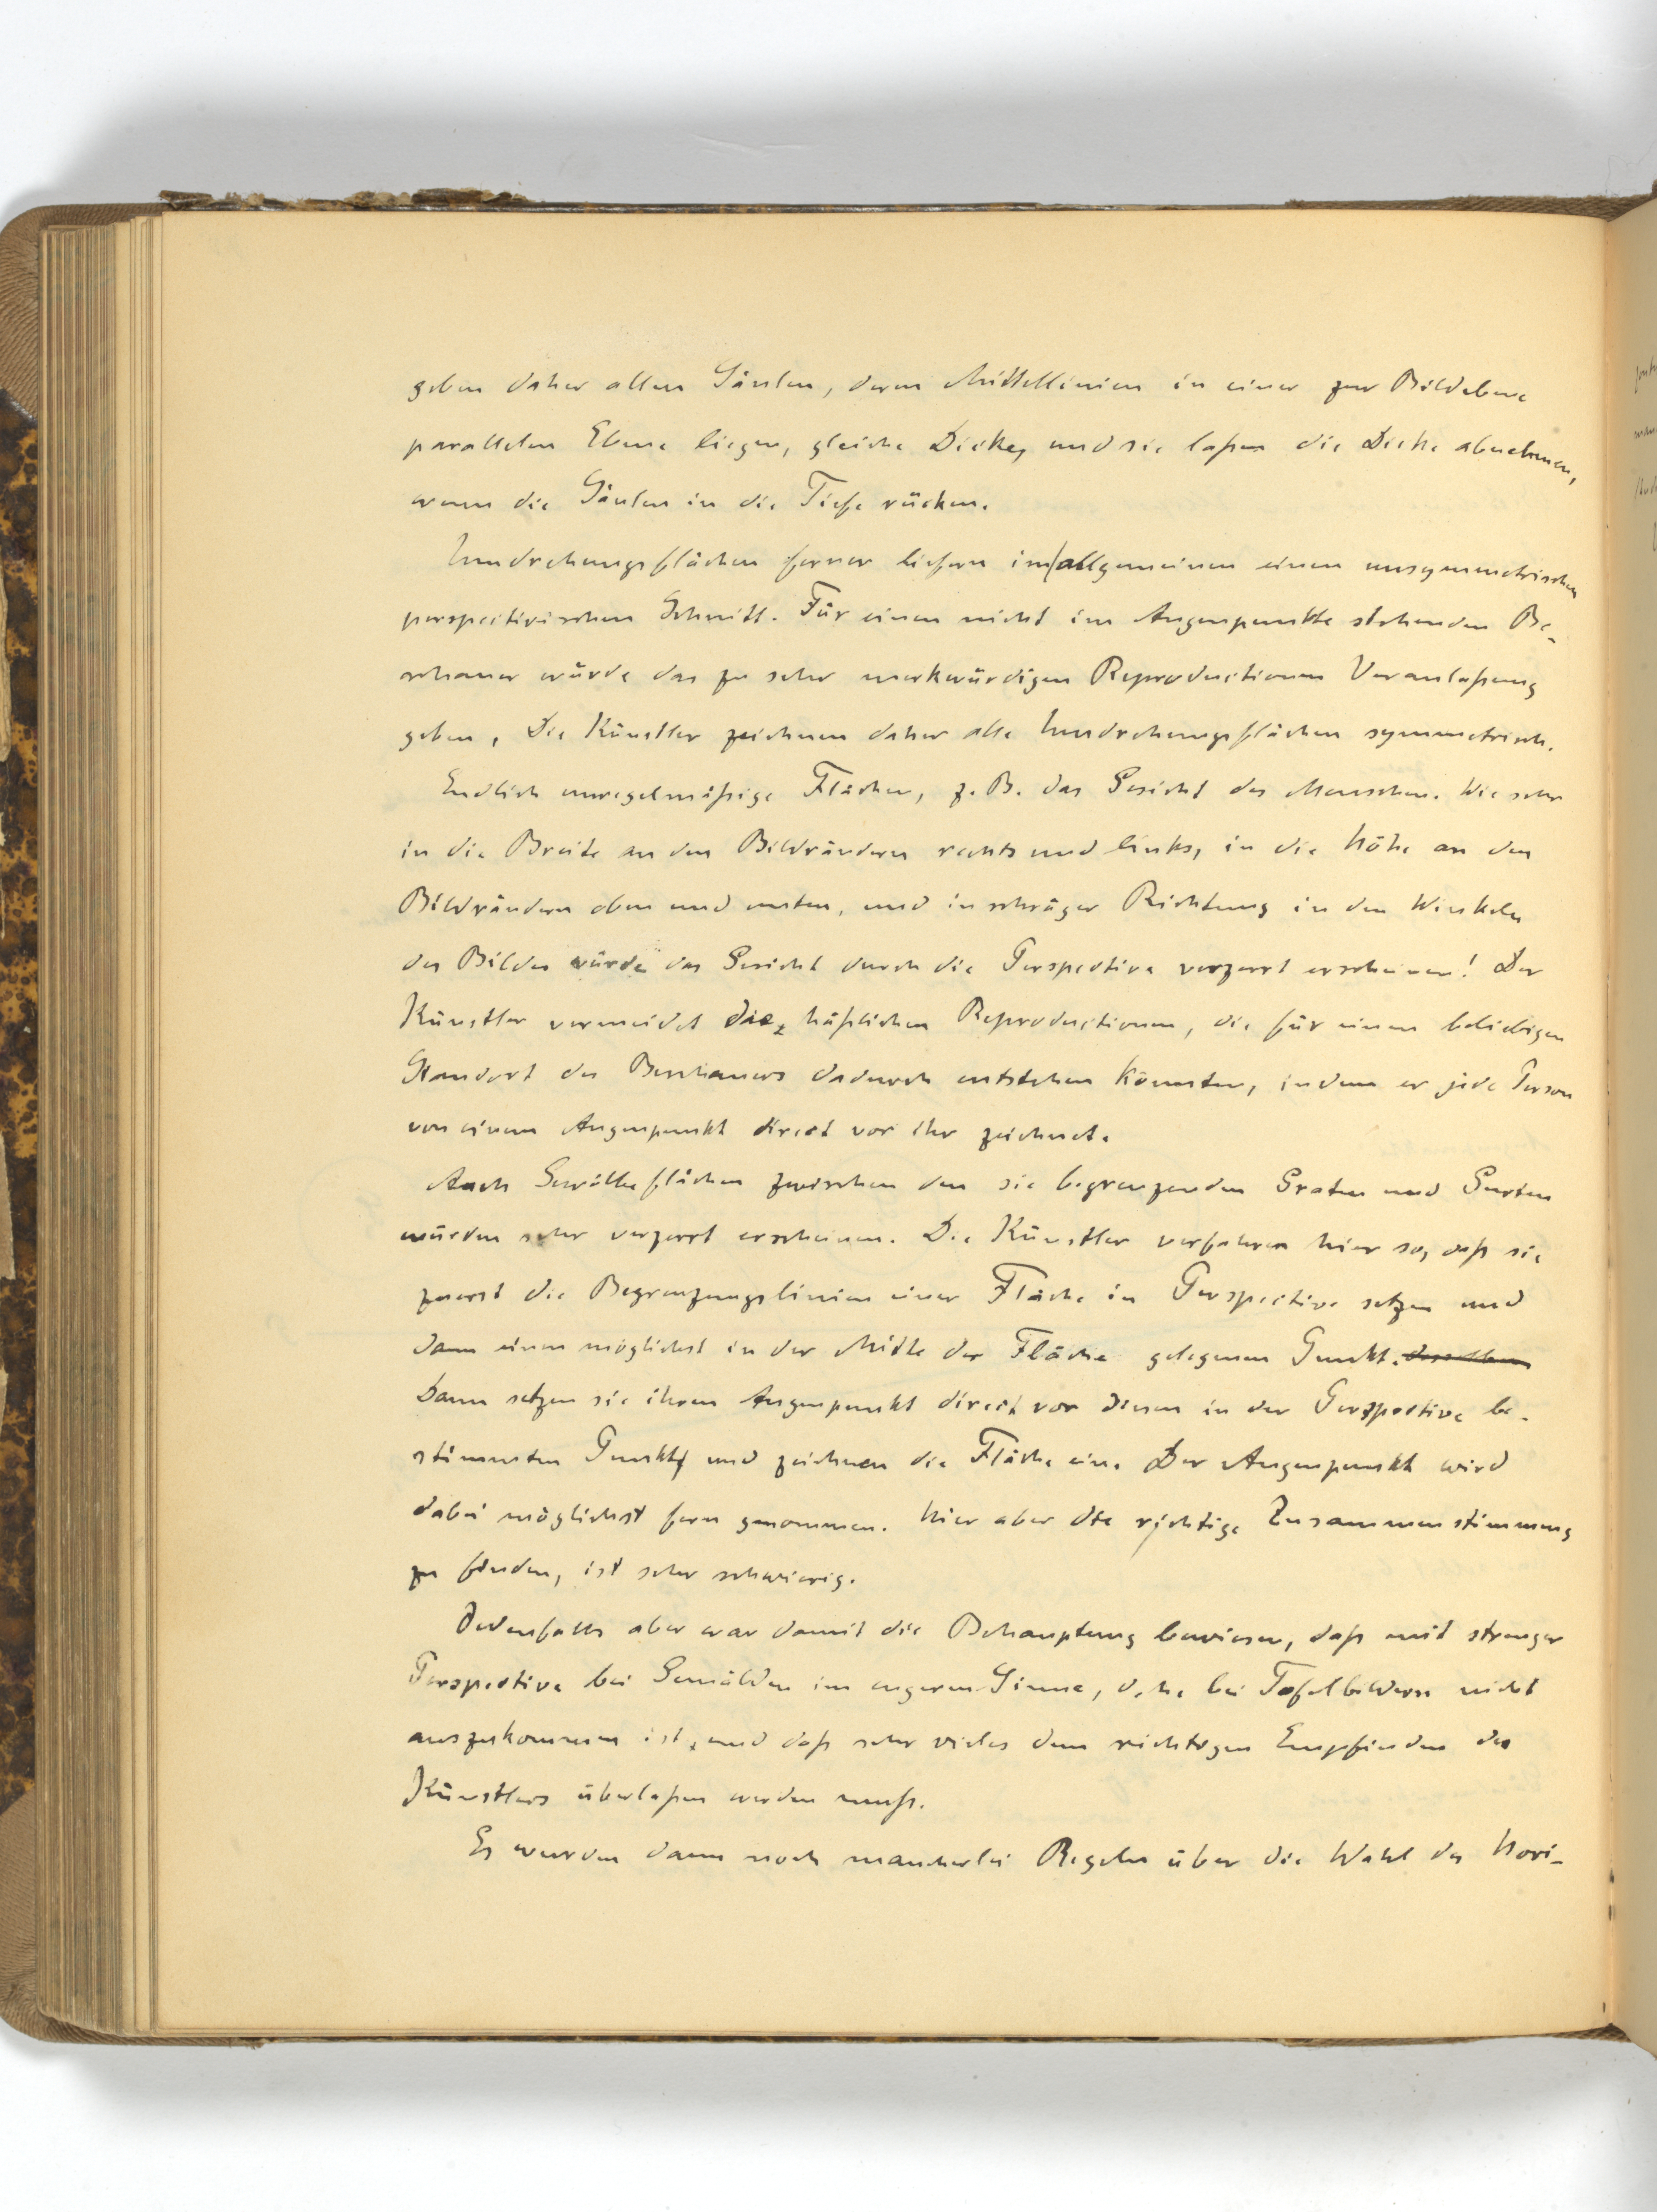 geben daher allen Säulen, deren Mittellinien in einer zur Bildebene
parallelen Ebene liegen, gleiche Dicke, und sie laßen die Dicke abnehmen,
wenn die Säulen in die Tiefe rücken.
Umdrehungsflächen ferner liefern im allgemeinen einen unsymmetrischen
perspectivischen Schnitt. Für einen nicht im Augenpunkte stehenden Be-
schauer würde das zu sehr merkwürdigen Reproductionen Veranlaßung
geben, Die Künstler zeichnen daher alle Umdrehungsflächen symmetrisch.
Endlich unregelmäßige Flächen, z. B. das Gesicht des Menschen. Wie sehr
in die Breite an den Bildrändern rechts und links, in die Höhe an den
Bildrändern oben und unten, und in schräger Richtung in den Winkeln
des Bildes würde das Gesicht durch die Perspective verzerrt erscheinen! Der
Künstler vermeidet die häßlichen Reproductionen, die für einen beliebigen
Standort des Beschauers dadurch entstehen könnten, indem er jede Person
von einem Augenpunkt direct vor ihr zeichnet.
Auch Gewölbeflächen zwischen den sie begrenzenden Graten und Gurten
würden sehr verzerrt erscheinen. Die Künstler verfahren hier so, daß sie
zuerst die Begrenzungslinien einer Fläche in Perspective setzen und
dann einen möglichst in der Mitte der Fläche gelegenen Punkt. derselben
Dann setzen sie ihren Augenpunkt direct vor diesen in der Perspective be-
stimmten Punkt und zeichnen die Fläche ein. Der Augenpunkt wird
dabei möglichst fern genommen. Hier aber die richtige Zusammenstimmung
zu finden, ist sehr schwierig.
Jedenfalls aber war damit die Behauptung bewiesen, daß mit strenger
Perspective bei Gemälden im engeren Sinne, d. h. bei Tafelbildern nicht
auszukommen ist, und daß sehr vieles dem richtigen Empfinden des
Künstlers überlaßen werden muß.
Es wurden dann noch mancherlei Regeln über die Wahl des Hori-